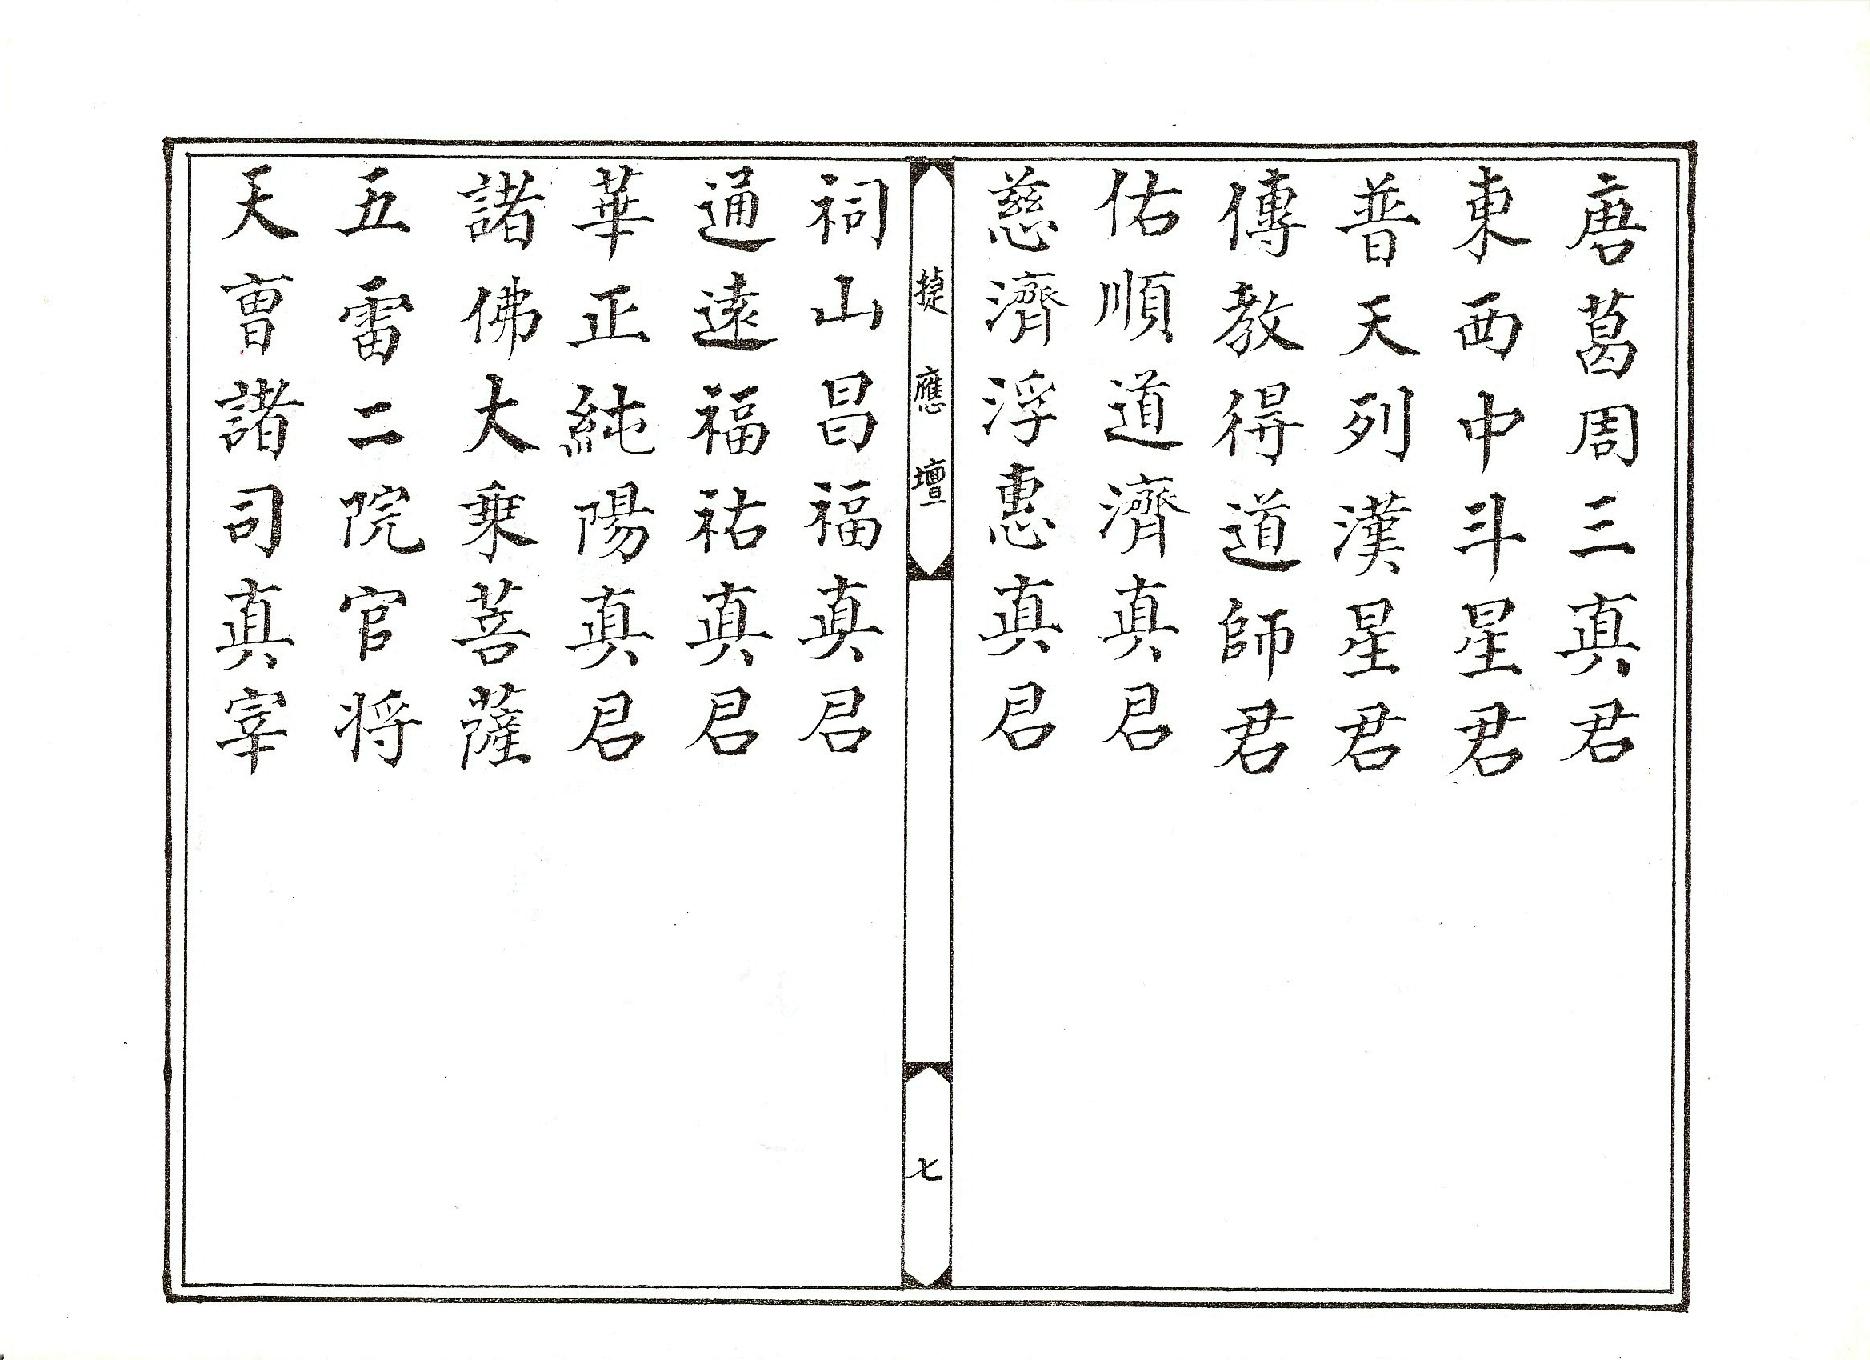 唐葛周三真君
東西中斗星君
普天列漢星君
傳教得道師君
佑順道濟真君
慈濟浮惠真君
捷應壇
七
祠山昌福真君
通遠福祐真君
華正純陽真君
諸佛大乗菩薩
五雷二院官将
天曹諸司真宰